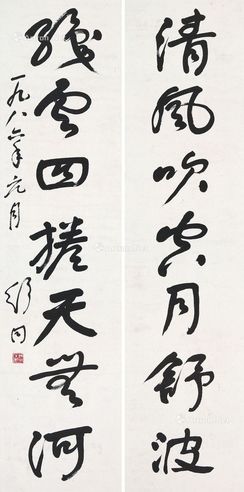 清風吹空月舒波
纖雲四捲天無河
一九八六年元月 舒同